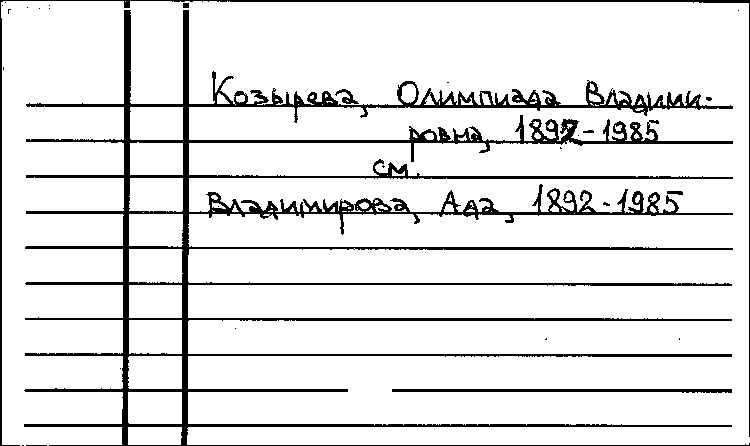 Козырева, Олимпиада Владими-
ровна, 1892-1985
см.
Владимирова, Ада, 1892-1985